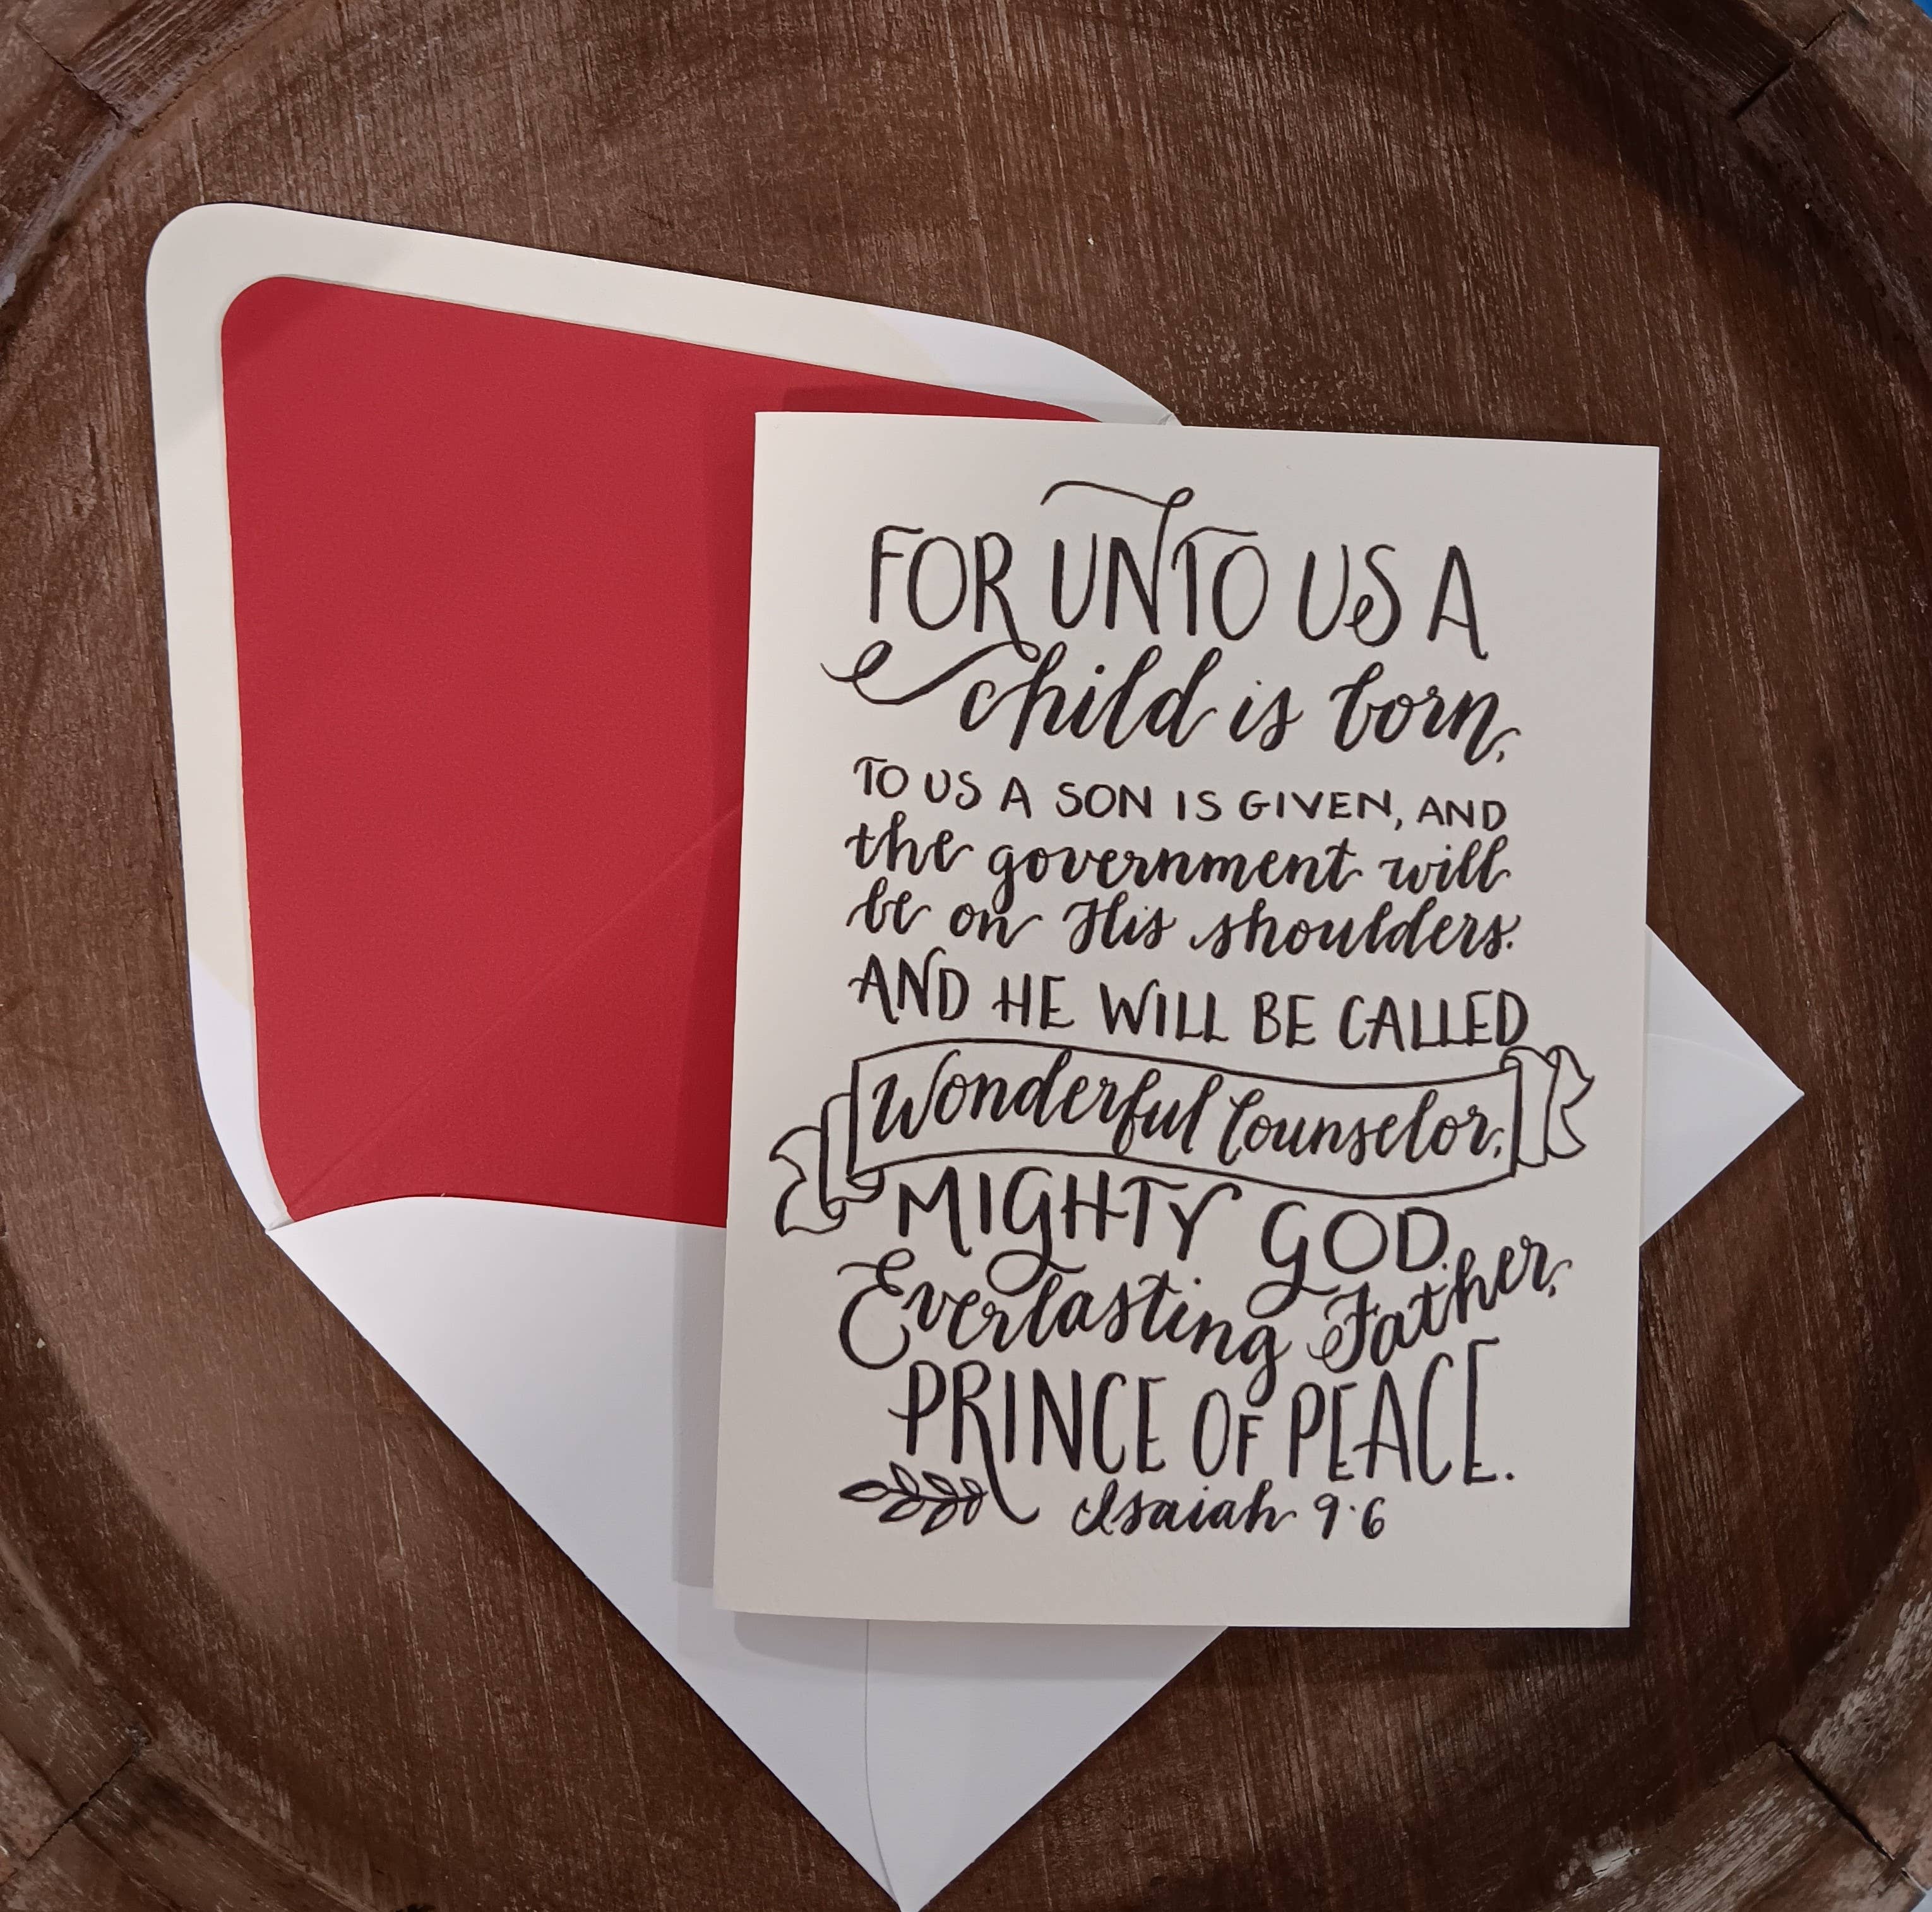 FOR UNTO US A
child is born,
TO US A SON IS GIVEN, AND
the government will
be on His shoulders.
AND HE WILL BE CALLED
Wonderful Counselor,
MIGHTY GOD,
Everlasting Father,
PRINCE OF PEACE.
Isaiah 9:6